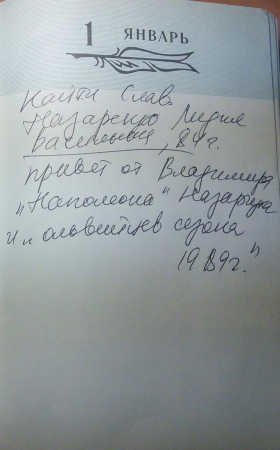 1 ЯНВАРЬ
Найти Слав.
Назаренко Лидия
Васильевна, 84г.
привет от Владимира
„Наполеона" Назарука
и „ольвийцев сезона
1989г."